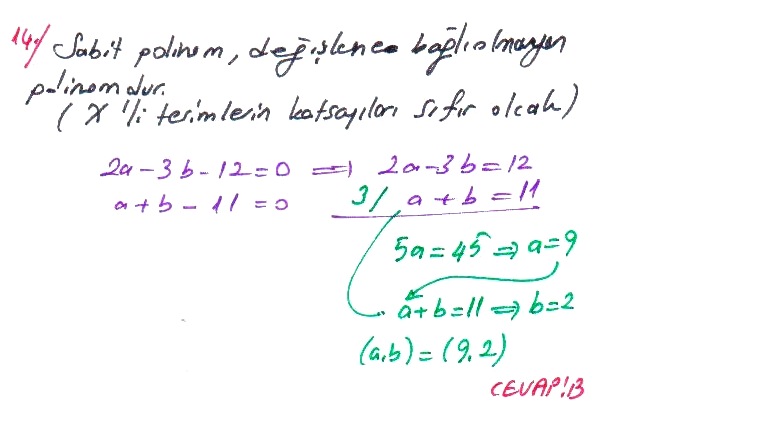 14./ Sabit polinom, değişkene bağlı olmayan
polinomdur.
( X'li terimlerin katsayıları sıfır olcak)
2a-3b-12=0 ⟹ 2a-3b=12
a+b-11=0 3/ a+b=11
5a=45 ⟹ a=9
a+b=11 ⟹ b=2
(a,b)=(9,2)
CEVAP:B